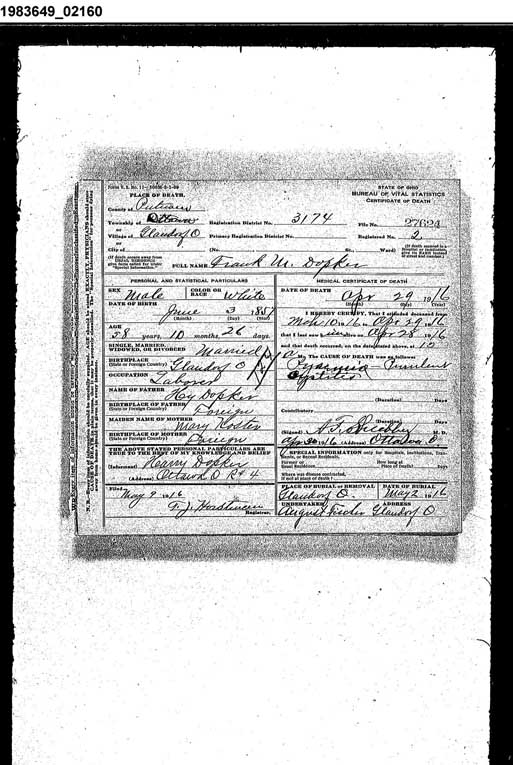 1983649_02160
STATE OF OHIO
BUREAU OF VITAL STATISTICS
CERTIFICATE OF DEATH
PLACE OF DEATH.
County of Putnam
Township of Ottawa Registration District No. 3174 File No. 27624
or
Village of Glandorf O Primary Registration District No. Registered No. 2
or
City of (No. St., Ward)
FULL NAME Frank M. Dopker
PERSONAL AND STATISTICAL PARTICULARS
SEX Male COLOR OR RACE White
DATE OF BIRTH
June 3
(Month) (Day) (Year)
AGE
58 years, 10 months, 26 days.
SINGLE, MARRIED, WIDOWED, OR DIVORCED Married
BIRTHPLACE
(State or Foreign Country) Glandorf O
OCCUPATION Laborer
NAME OF FATHER Hy Dopker
BIRTHPLACE OF FATHER
(State or Foreign Country) Foreign
MAIDEN NAME OF MOTHER
Mary
BIRTHPLACE OF MOTHER
(State or Foreign Country) Foreign
THE ABOVE STATED PERSONAL PARTICULARS ARE
TRUE TO THE BEST OF MY KNOWLEDGE AND BELIEF
(Informant) Henry Dopker
(Address) Ottawa O R# 4
Filed
May 9 1916
F. J. Horstman
Registrar.
MEDICAL CERTIFICATE OF DEATH
DATE OF DEATH
Apr 29 1916
(Month) (Day) (Year)
I HEREBY CERTIFY, That I attended deceased from
1916 to Apr 29 1916
that I last saw alive on Apr 28 1916
and that death occurred, on the date stated above, at 10
M. The CAUSE OF DEATH was as follows:
Pyaemia Purulent
Cystitis
(Duration) Days
Contributory
(Duration) Days
(Signed) M. D.
Apr 30 1916 (Address) Ottawa O
SPECIAL INFORMATION only for Hospitals, Institutions, Transients, or Recent Residents.
Former or Usual Residence How long at Place of Death? Days
Where was disease contracted,
if not at place of death?
PLACE OF BURIAL OR REMOVAL DATE OF BURIAL
Glandorf O. May 2 1916
UNDERTAKER ADDRESS
August Fischer Glandorf O